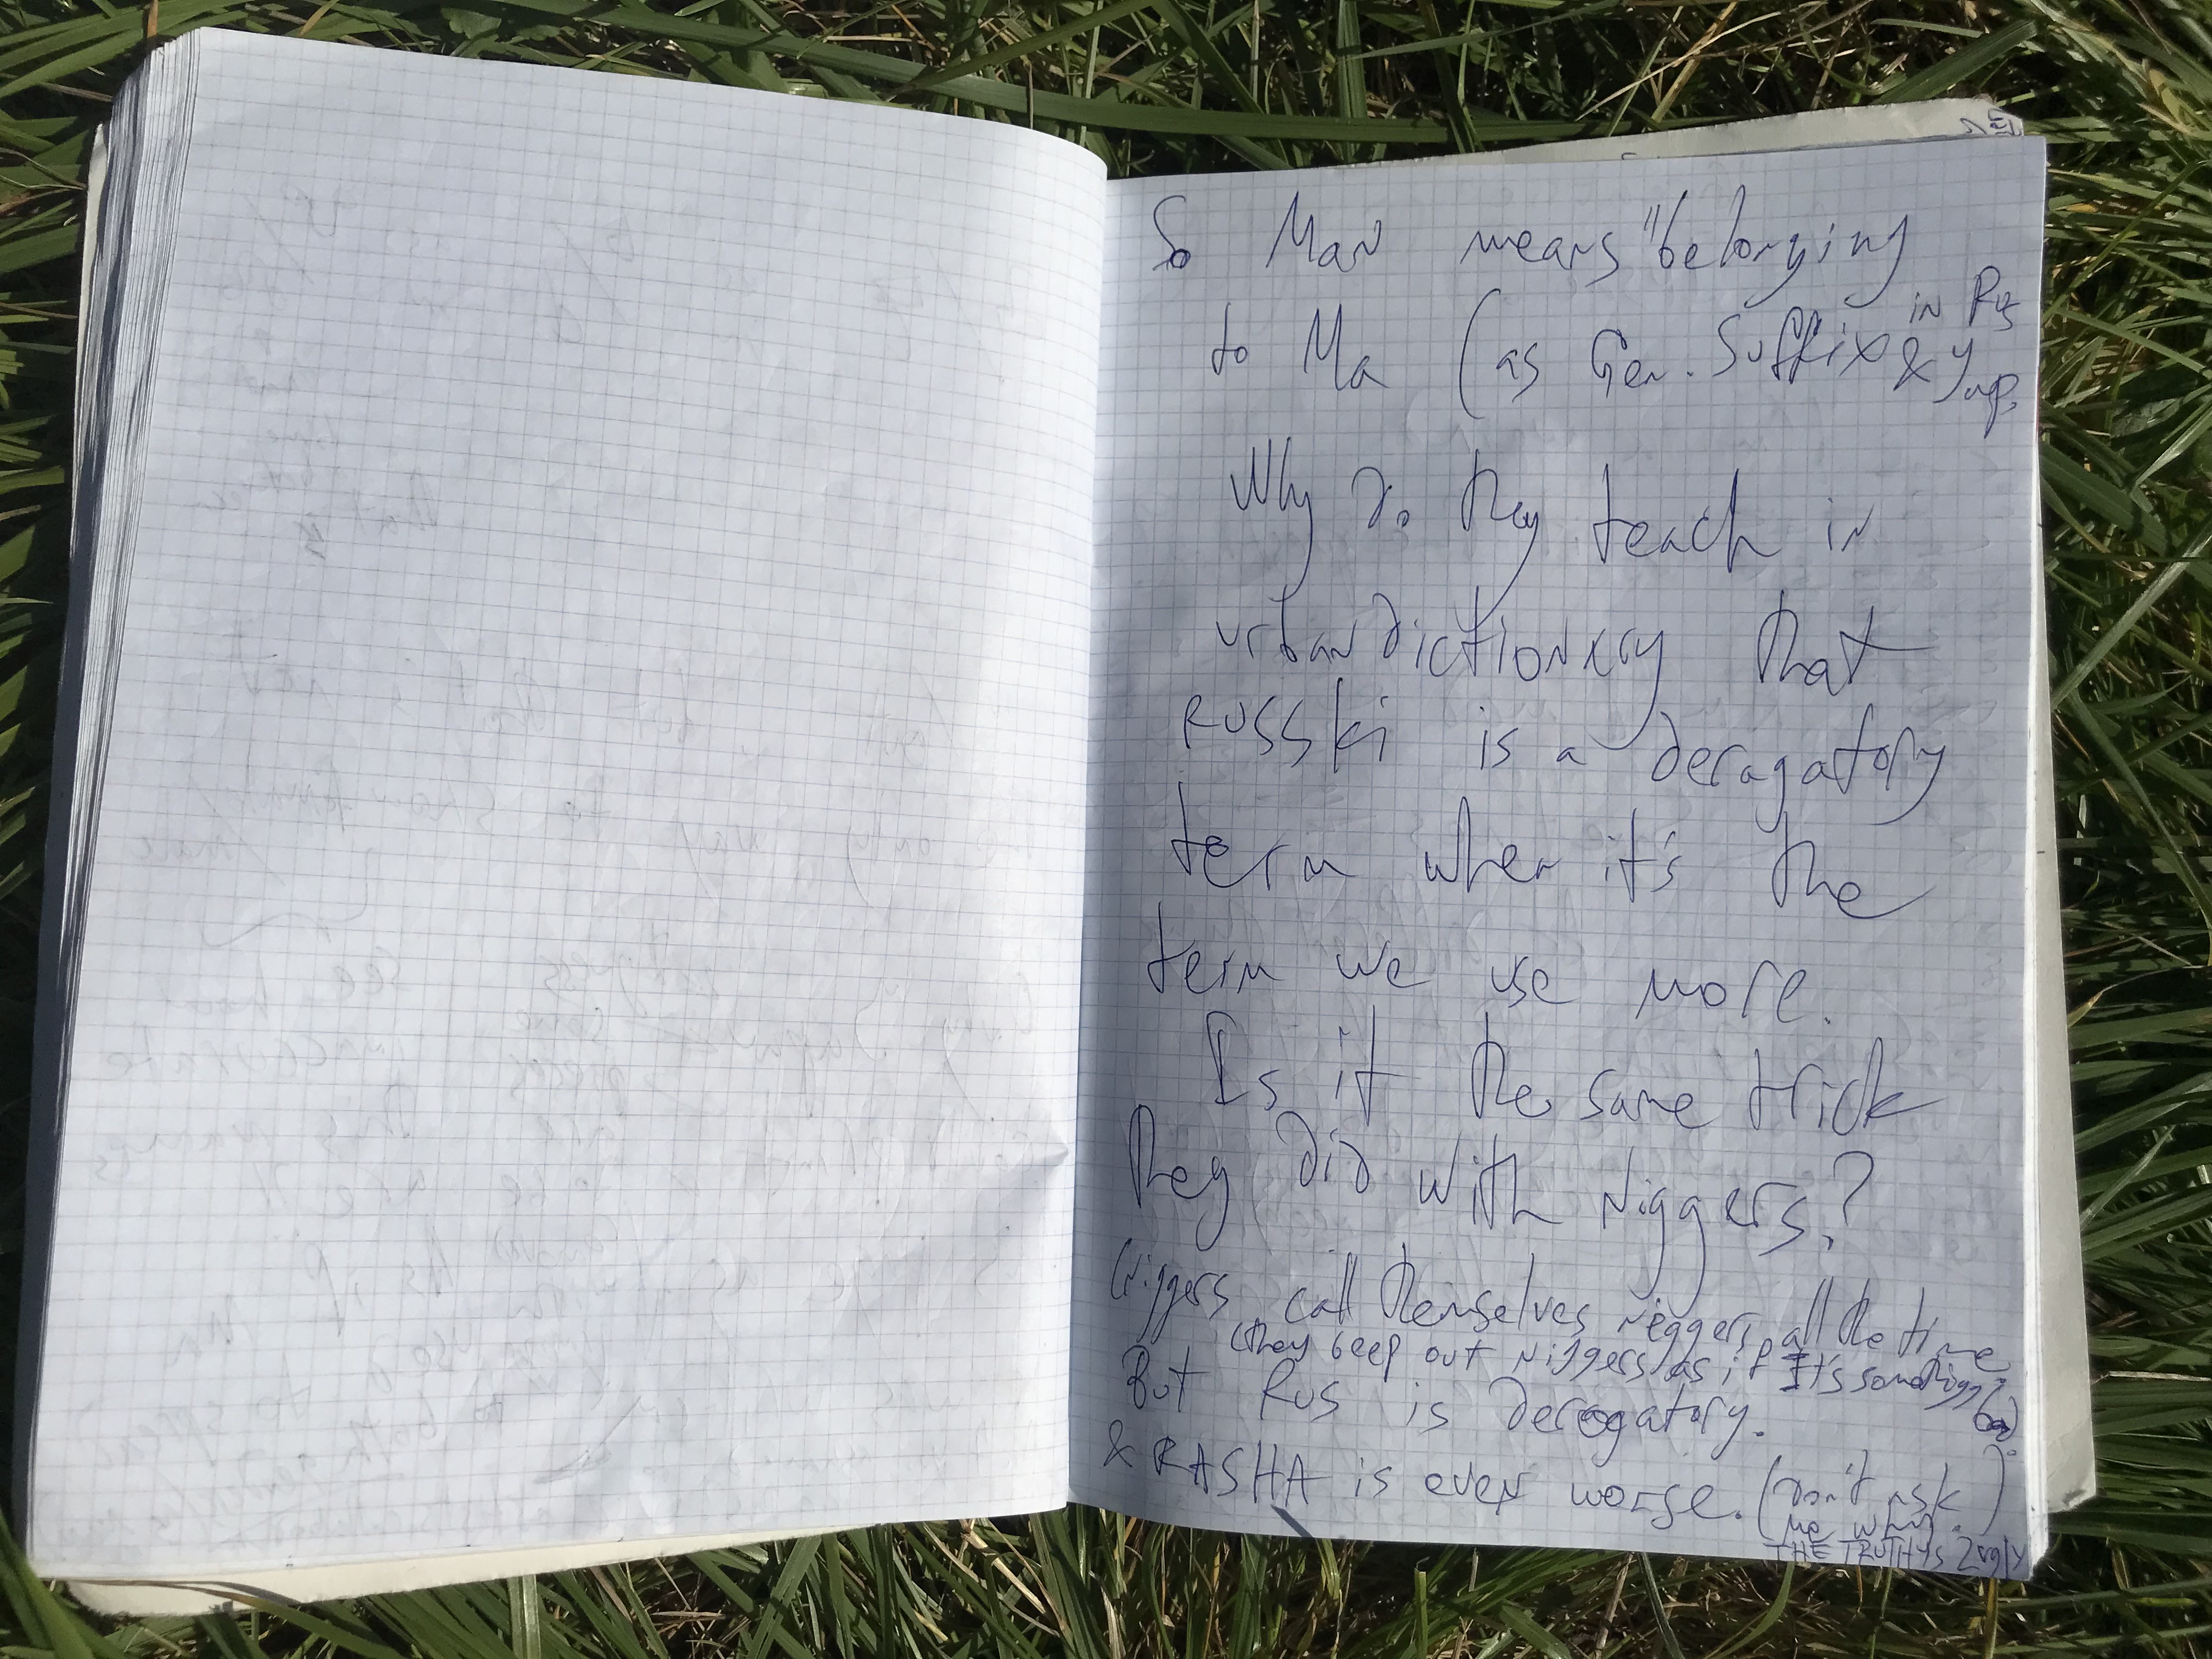 So Man means "belonging
to Ma (as Gen. suffix in Ру
& Jap.
Why do they teach in
urbandictionary that
RUSSki is a deragatory
term when it's the
term we use more.
Is it the same trick
they did with Niggers?
Niggers call themselves niggers all the time
But they beep out niggers as if it's something bad
Rus is derogatory.
& RASHA is even worse. (Don't ask
me why)
THE TRUTH IS Ugly